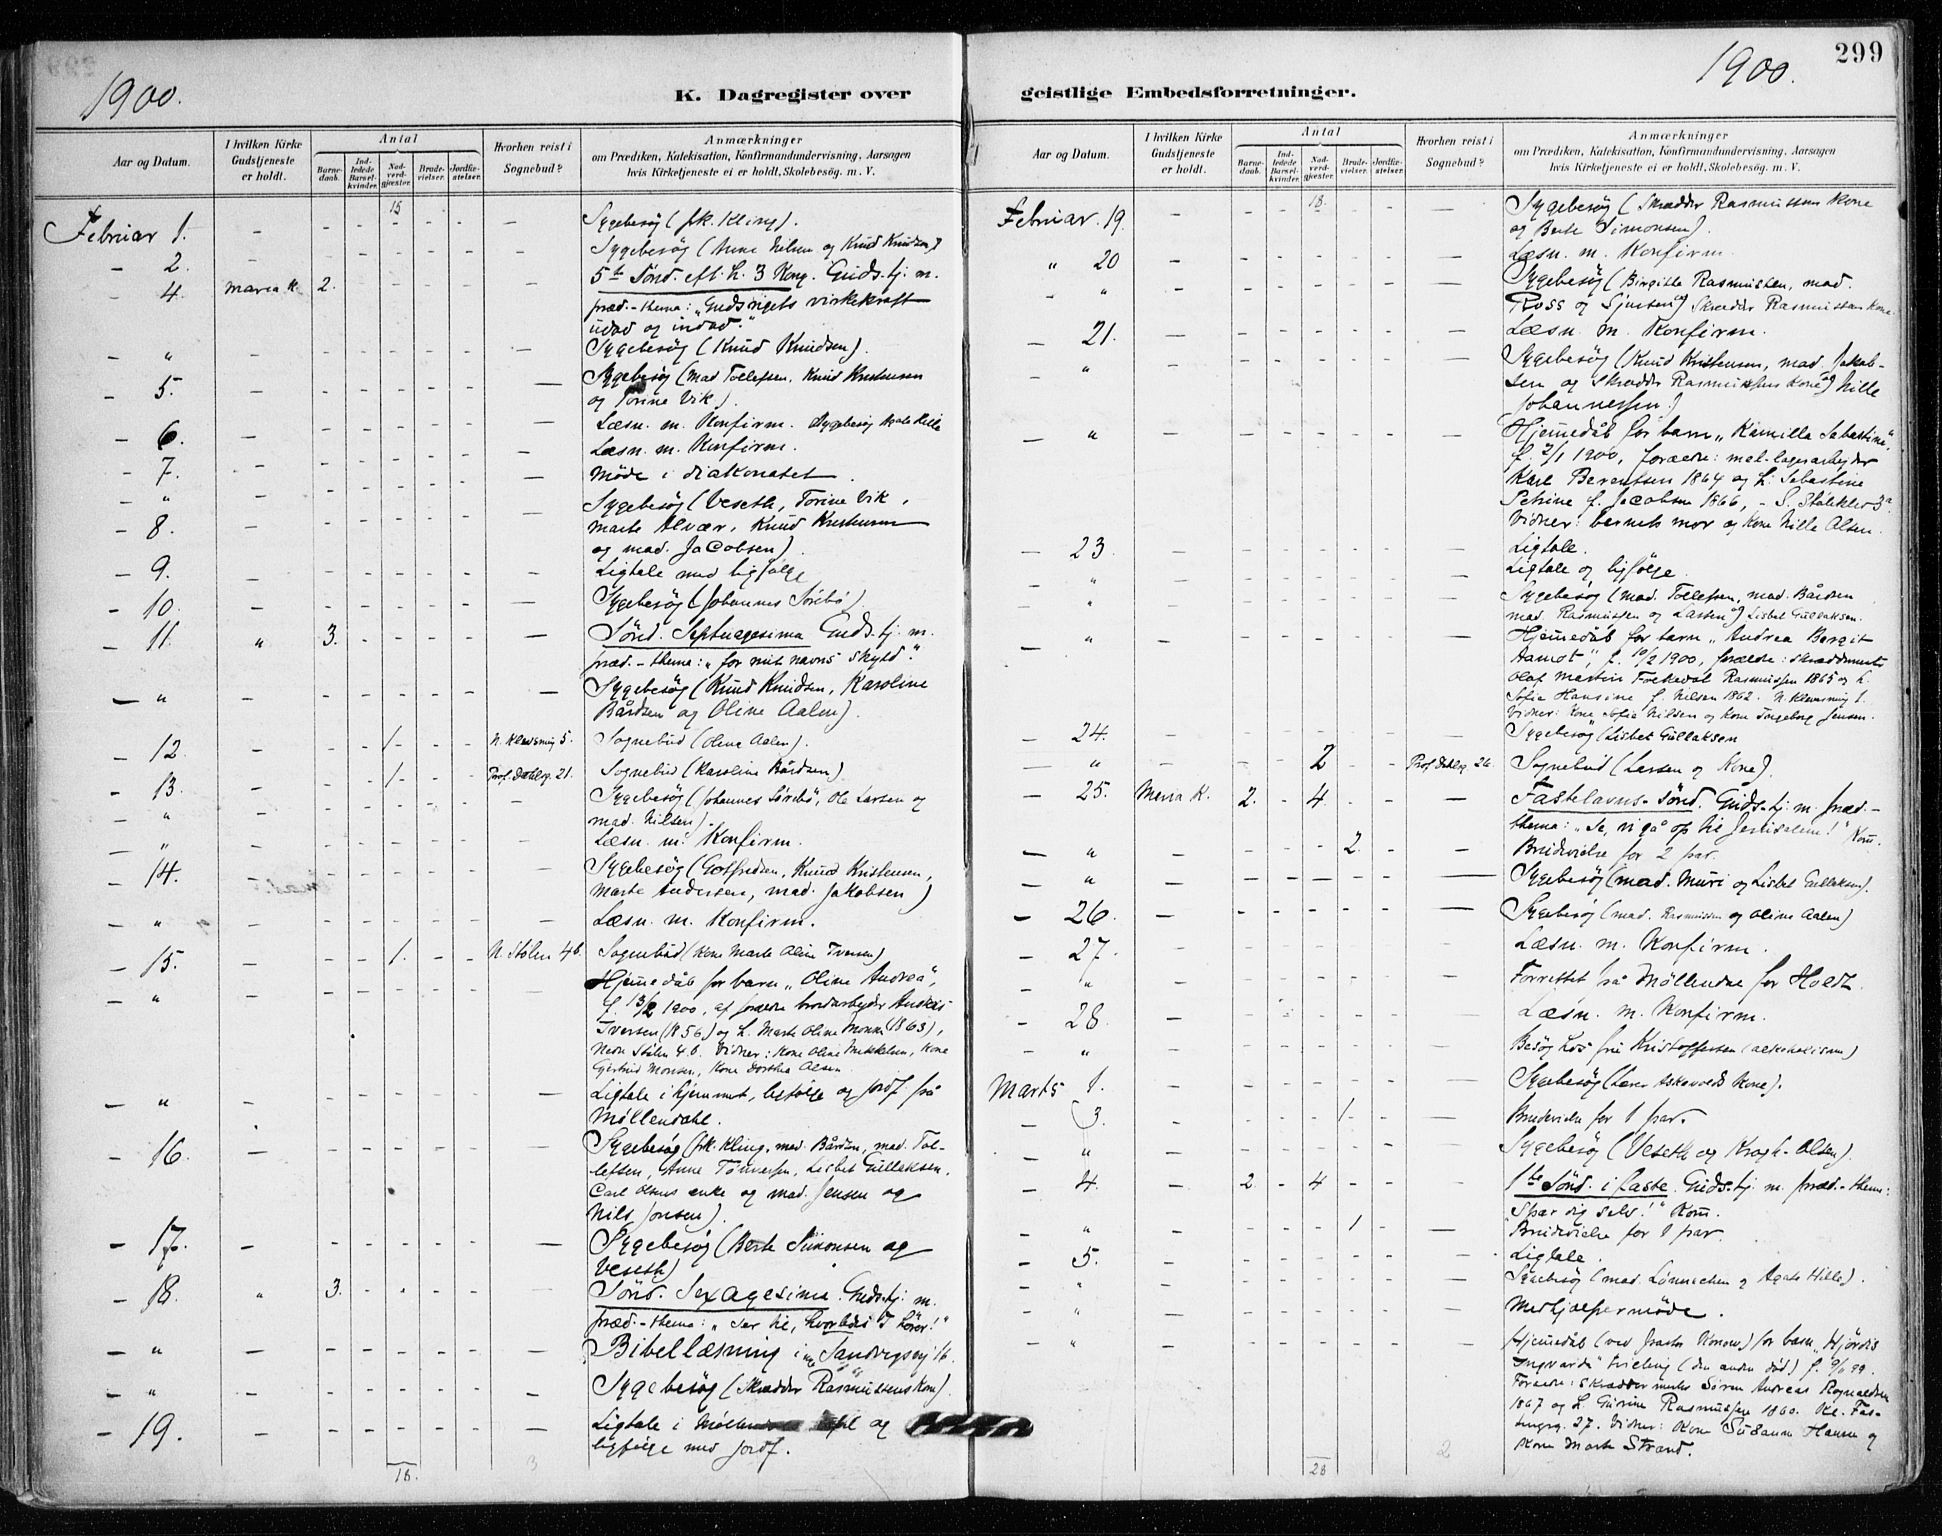 1900.
K. Dagregister over
Aar og Datum.
I hvilken Kirke
Gudstjeneste
er holdt.
Antal
Barne-
daab.
Ind-
ledede
Barsel-
kvinder.
Nad-
verd-
gjæster.
Brude-
vielser.
Jordfæ-
stelser.
Hvorhen reist i
Sognebud?
Anmærkninger
om Prædiken, Katekisation, Konfirmandundervisning, Aarsagen
hvis Kirketjeneste ei er holdt, Skolebesøg. m. V.
15
Februar 1. Sygebesøg (frk. Kling).
2. Sygebesøg (Anne Nilsen og Knud Knudsen)
4 Maria K. 2. 5te Sønd. eft. h. 3 Kong. Guds.tj. m.
præd.-thema: „Gudsrigets virkekraft
udad og indad."
" Sygebesøg (Knud Knudsen).
5. Sygebesøg (mad Tollefsen, Knud Kristensen
og Torine Vik).
6. Læsn. m. Konfirm. Sygebesøg Agate Hille
7. Læsn. m. Konfirm.
" Møde i diakonatet.
8. Sygebesøg (Veseth, Torine Vik,
Marte Alvær, Knud Kristensen
og mad. Jacobsen).
9. Ligtale med ligfølge
10. Sygebesøg (Johannes Sörebö)
11. " 3. Sönd. Septuagesima Guds.tj. m.
præd.-thema: „for mit navns skyld."
" Sygebesøg (Knud Knudsen, Karoline
Bårdsen og Oline Aalen).
12. 1 N. Klevsmug 5. Sognebud (Oline Aalen).
13. 1 Prof. Dahlsg. 21. Sognebud (Karoline Bårdsen)
" Sygebesøg (Johannes Sörebö, Ole Larsen og
mad. Nilsen).
" Læsn. m. Konfirm.
14. Sygebesøg (Gotfredsen, Knud Kristensen,
Marte Andersen, mad. Jakobsen)
" Læsn. m. Konfirm.
15. 1. N. Stölen 4b. Sognebud (Kone Marte Oline Iversen)
" Hjemedåb for barn „Oline Andrea",
f. 13/2 1900, af forældre bordarbeider Andreas
Iversen (1856) og h. Marte Oline Monsen (1863),
Nedre Stölen 4.b. Vidner: Kone Oline Mikkelsen, Kone
Gjertrud Monsen, Kone Dorthea Olsen.
" Ligtale i hjemmet, ligfølge og jordf. på
Møllendahl.
16. Sygebesøg (frk. Kling, mad. Bårdsen, mad. Tol-
lefsen, Anne Tönnesen, Lisbet Gullaksen,
Carl Olsens enke og mad. Jensen og
Nils Jonsen).
17. Sygebesøg (Berte Simonsen og
Veseth)
18. " 3. Sönd. Sexagesima. Guds.tj. m.
præd.-thema: „Ser til, hvorledes I hører!"
" Bibellæsning i Sandvigsvej 16.
" Sygebesøg (Skrædder Rasmussens Kone).
19. Ligtale i og
ligfølge med jordf.
18.
3
1900.
299
geistlige Embedsforretninger.
Aar og Datum.
I hvilken Kirke
Gudstjeneste
er holdt.
Antal
Barne-
daab.
Ind-
ledede
Barsel-
kvinder.
Nad-
verd-
gjæster.
Brude-
vielser.
Jordfæ-
stelser.
Hvorhen reist i
Sognebud?
Anmærkninger
om Prædiken, Katekisation, Konfirmandundervisning, Aarsagen
hvis Kirketjeneste ei er holdt, Skolebesøg. m. V.
18.
Februar 19. Sygebesøg (Skrædder Rasmussens Kone
og Berte Simonsen).
" 20 Læsn. m. Konfirm.
" Sygebesøg (Birgitte Rasmussen, mad.
Ross og Skrædder Rasmussens Kone
21. Læsn. m. Konfirm.
" Sygebesøg (Knud Kristensen, mad. Jakob-
sen og Skrædder Rasmussens Kone og Nille
Johannessen.)
" Hjemedåb for barn „Kamilla Sebastine",
f. 2/1 1900, forældre: mel-lagerarbejder
Karl Berentsen 1864 og h. Sebastine
Petrine f. Jacobsen 1866, - S. Stölekler 3a.
Vidner: barnets mor og Kone Nille Olsen.
23 Ligtale.
" Ligtale og ligfølge
" Sygebesøg (mad. Tollefsen, mad. Bårdsen
mad. Rasmussen og Larsen og Lisbet Gullaksen.
" Hjemedåb for barn „Andrea Bergit
Aamot", f. 10/2 1900, forældre: skræddermester
Olaf Martin Frekedal Rasmussen 1865 og h.
Sofie Hansine f. Nilsen 1862. N. Klevsmug 1.
Vidner: Kone Sofie Nilsen og Kone Ingeborg Jensen.
24. Sygebesøg (Lisbet Gullaksen
" 2 Prof Dahlsg 26. Sognebud (Larsen og Kone).
25. Maria K. 2. 4. Fastelavns-sønd. Guds.tj. m. præd.-
thema: „Se, vi gå op til Jerusalem!" Kom.
" 2. Brudevielse for 2 par.
" Sygebesøg (mad. Muri og Lisbet Gullaksen).
26. Sygebesøg (mad. Rasmussen og Oline Aalen)
27. Læsn. m. Konfirm.
" Forrettet på Møllendal for Holdt.
28. Læsn. m. Konfirm.
" Besøg hos fru Kristoffersen (alkoholism)
Marts 1. Sygebesøg (lærer Askevolds Kone).
3. 1 Brudevielse for 1 par.
" Sygebesøg (Veseth og Krogh-Olsen).
4. 2. 4 1ste Sönd. i faste. Guds.tj. m. præd.-thema:
„Spar dig selv!" Kom.
" 1 Brudevielse for 1 par.
5. Ligtale.
" Sygebesøg (mad. Lönnechen og Agate Hille).
" Medhjælpermøde.
" Hjemedåb (ved Konow) for barn „Hjördis
Ingvarda" tvilling (den anden død) f. 99.
Forældre: Skræddermester Sören Andreas Rognaldsen
1867 og h. Gurine Rasmussen 1860. Kl. Fas-
tingsg. 27. Vidner: Kone Susanne Hansen og
Kone Marte Strand.
28
2